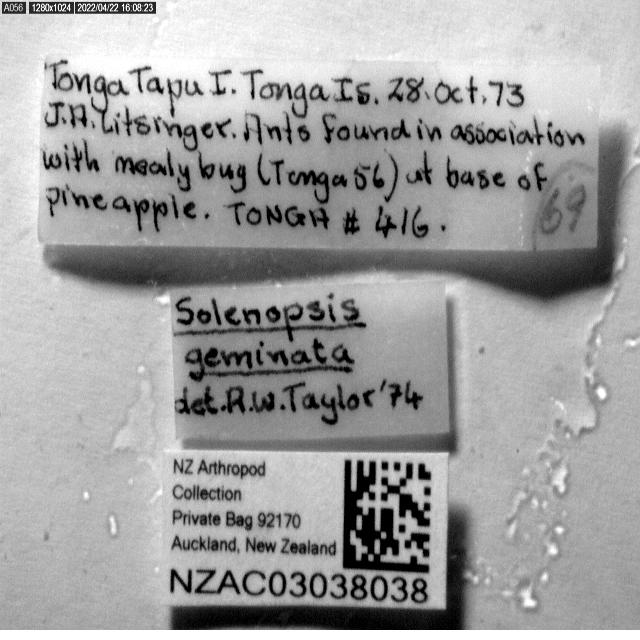 A056 1280x1024 2022/04/22 16:08:23
Tonga Tapu I. Tonga Is. 28.Oct.73
J.A.Litsinger. Ants found in association
with mealy bug (Tonga 56) at base of
pineapple. TONGA # 416.
69
Solenopsis
geminata
det.R.W.Taylor'74
NZ Arthropod
Collection
Private Bag 92170
Auckland, New Zealand
NZAC03038038